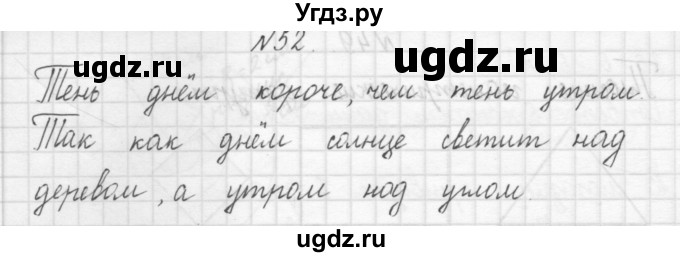 Угдз.ру
N52.
ugdz.ru ugdz.ru
Тень днём короче, чем тень утром.
Так как днём солнце светит над
деревом, а утром под углом.
ugdz.ru